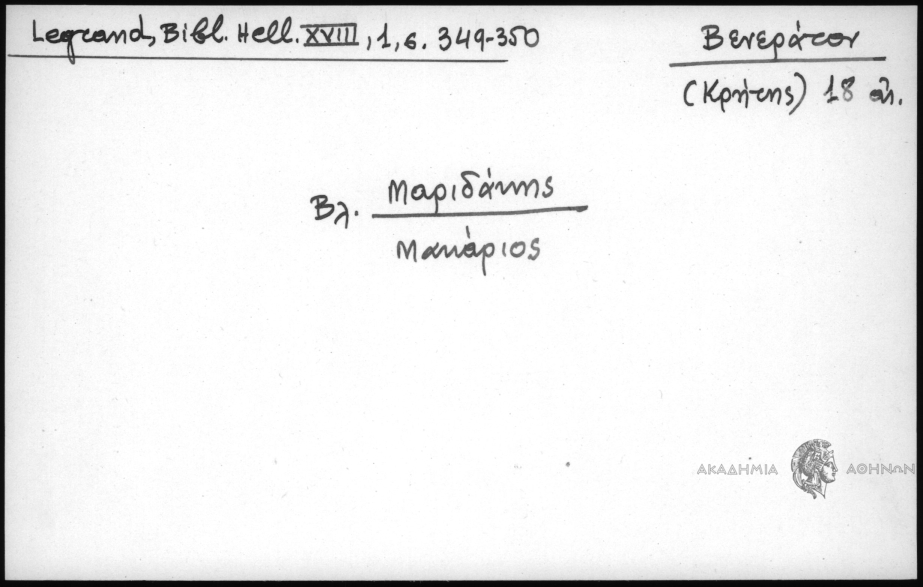 Legrand, Bibl. Hell. XVIII, 1, σ. 349-350
Βενεράτον
(Κρήτης) 18 αἰ.
Βλ. Μαριδάκης
Μακάριος
ΑΚΑΔΗΜΙΑ ΑΘΗΝΩΝ